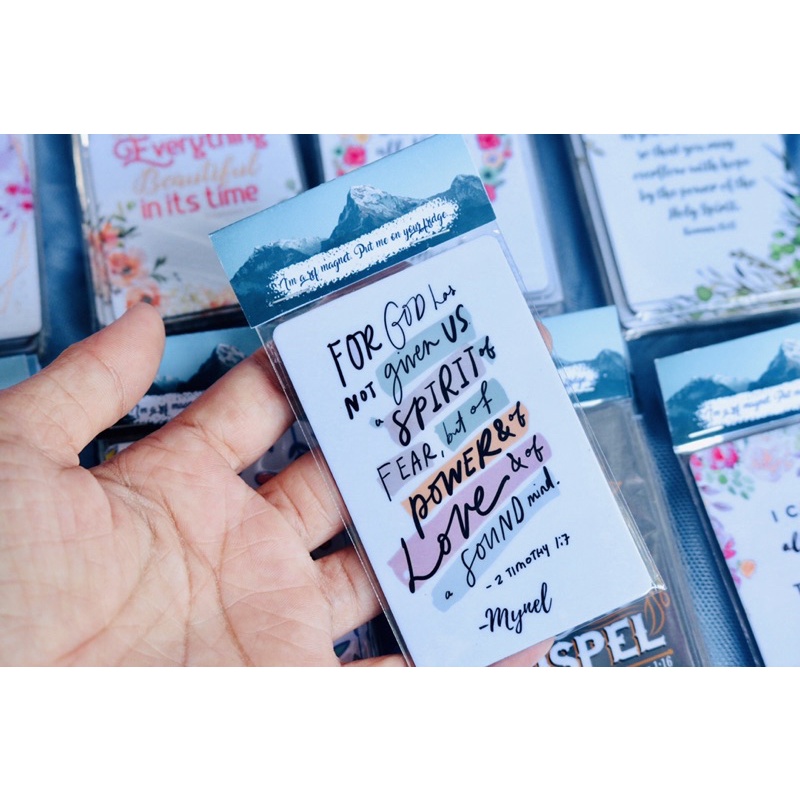 Everything
Beautiful
in its time
so that you may
overflow with hope
by the power of the
Holy Spirit.
I'm a ref magnet. Put me on your fridge.
FOR GOD has
NOT given US
a SPIRIT of
FEAR, but of
POWER & of
LOVE & of
a SOUND mind.
- 2 TIMOTHY 1:7
-Mynel
I'm a ref magnet. Put m
fridge.
SPEL
1:16
I C